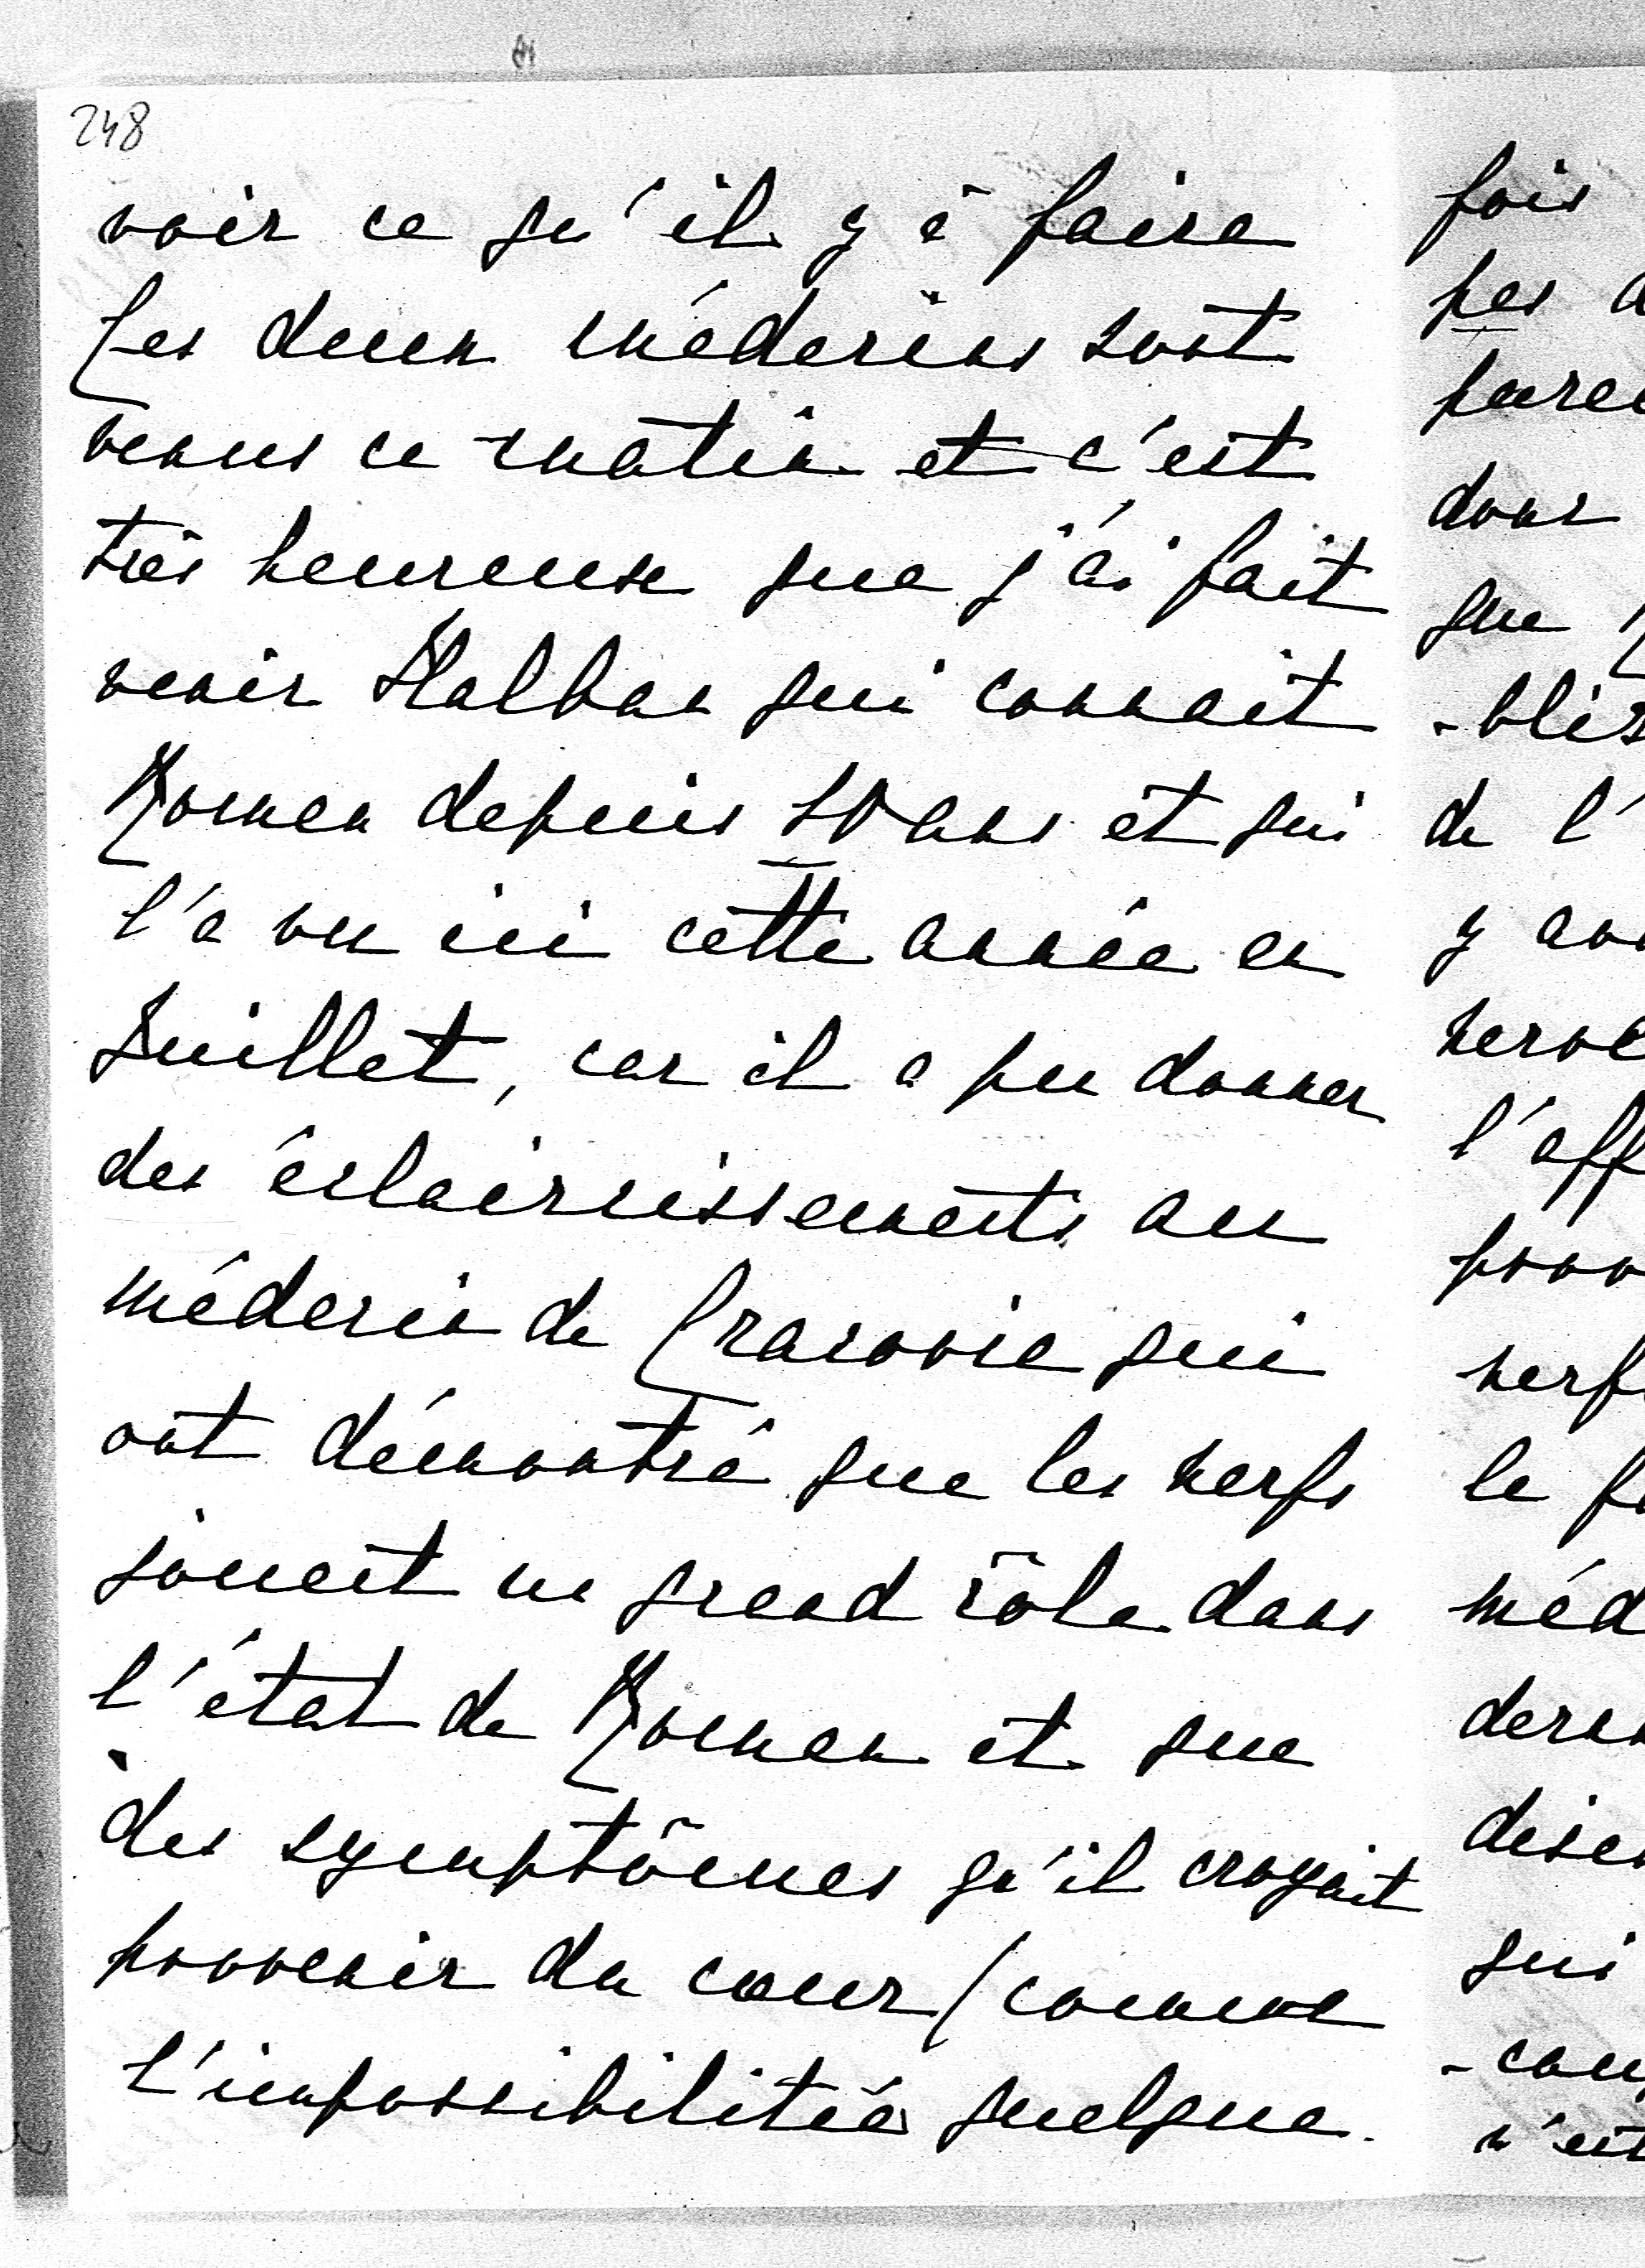 248
voir ce qu'il y a faire
Les deux médecins sont
venus ce matin et c'est
très heureuse que j'ai fait
venir Halban qui connait
Roman depuis 10 ans et qui
l'a vu ici cette année en
Juillet, car il a pu donner
des éclaircissements au
médecin de Cracovie qui
ont démontré que les nerfs
jouent un grand rôle dans
l'état de Roman et que
des symptômes qu'il croyait
provenir du cœur (comme
l'impossibilitée quelque
fois
pas
donc
que
de l'
y
le
qui
n'est